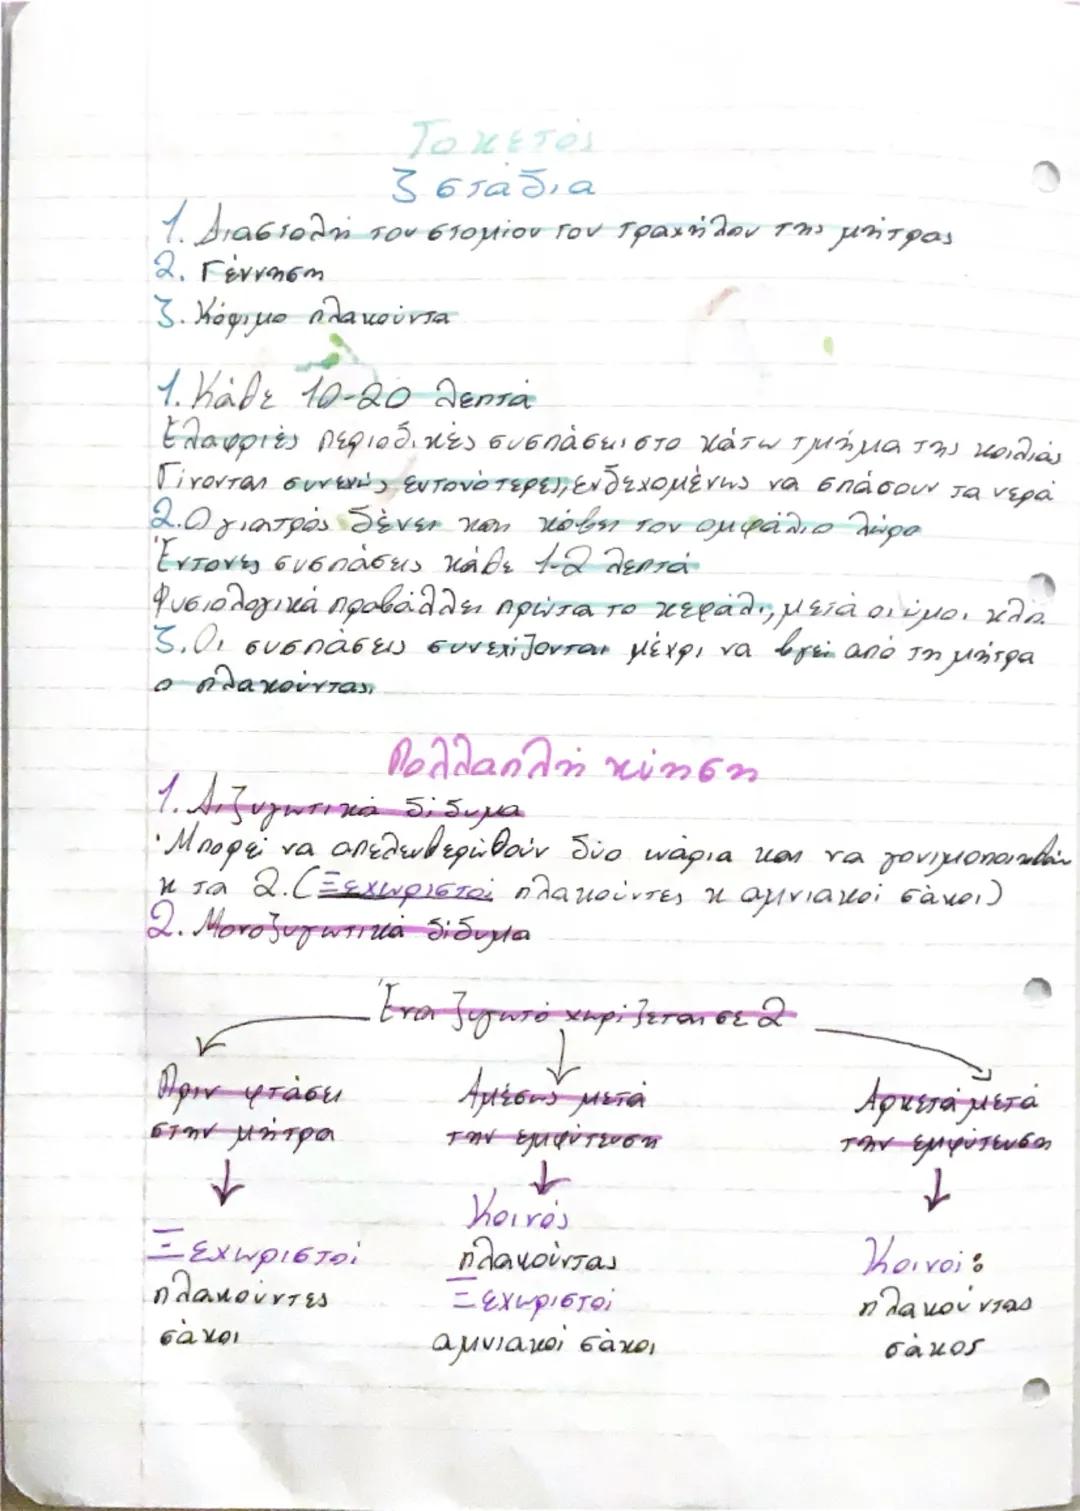 Τοκετός
3 στάδια
1. Διαστολή του στομίου του τραχήλου της μήτρας
2. Γέννηση
3. Κόψιμο πλακούντα
1. Κάθε 10-20 λεπτά
Ελαφριές περιοδικές συσπάσεις στο κάτω τμήμα της κοιλιάς
Γίνονται συνεχώς εντονότερες, ενδεχομένως να σπάσουν τα νερά
2. Ο γιατρός δένει και κόβει τον ομφάλιο λώρο
Έντονες συσπάσεις κάθε 1-2 λεπτά
Φυσιολογικά προβάλλει πρώτα το κεφάλι, μετά οι ώμοι κλπ
3. Οι συσπάσεις συνεχίζονται μέχρι να βγει από τη μήτρα
ο πλακούντας
Πολλαπλή κύηση
1. Διζυγωτικά δίδυμα
·Μπορεί να απελευθερωθούν δύο ωάρια και να γονιμοποιηθούν
κ τα 2. (Ξεχωριστοί πλακούντες κ αμνιακοί σάκοι)
2. Μονοζυγωτικά δίδυμα
Ένα ζυγωτό χωρίζεται σε 2
Πριν φτάσει
στην μήτρα
Ξεχωριστοί
πλακούντες
σάκοι
Αμέσως μετά
την εμφύτευση
Κοινός
πλακούντας
Ξεχωριστοί
αμνιακοί σάκοι
Αρκετά μετά
την εμφύτευση
Κοινοί:
πλακούντας
σάκος